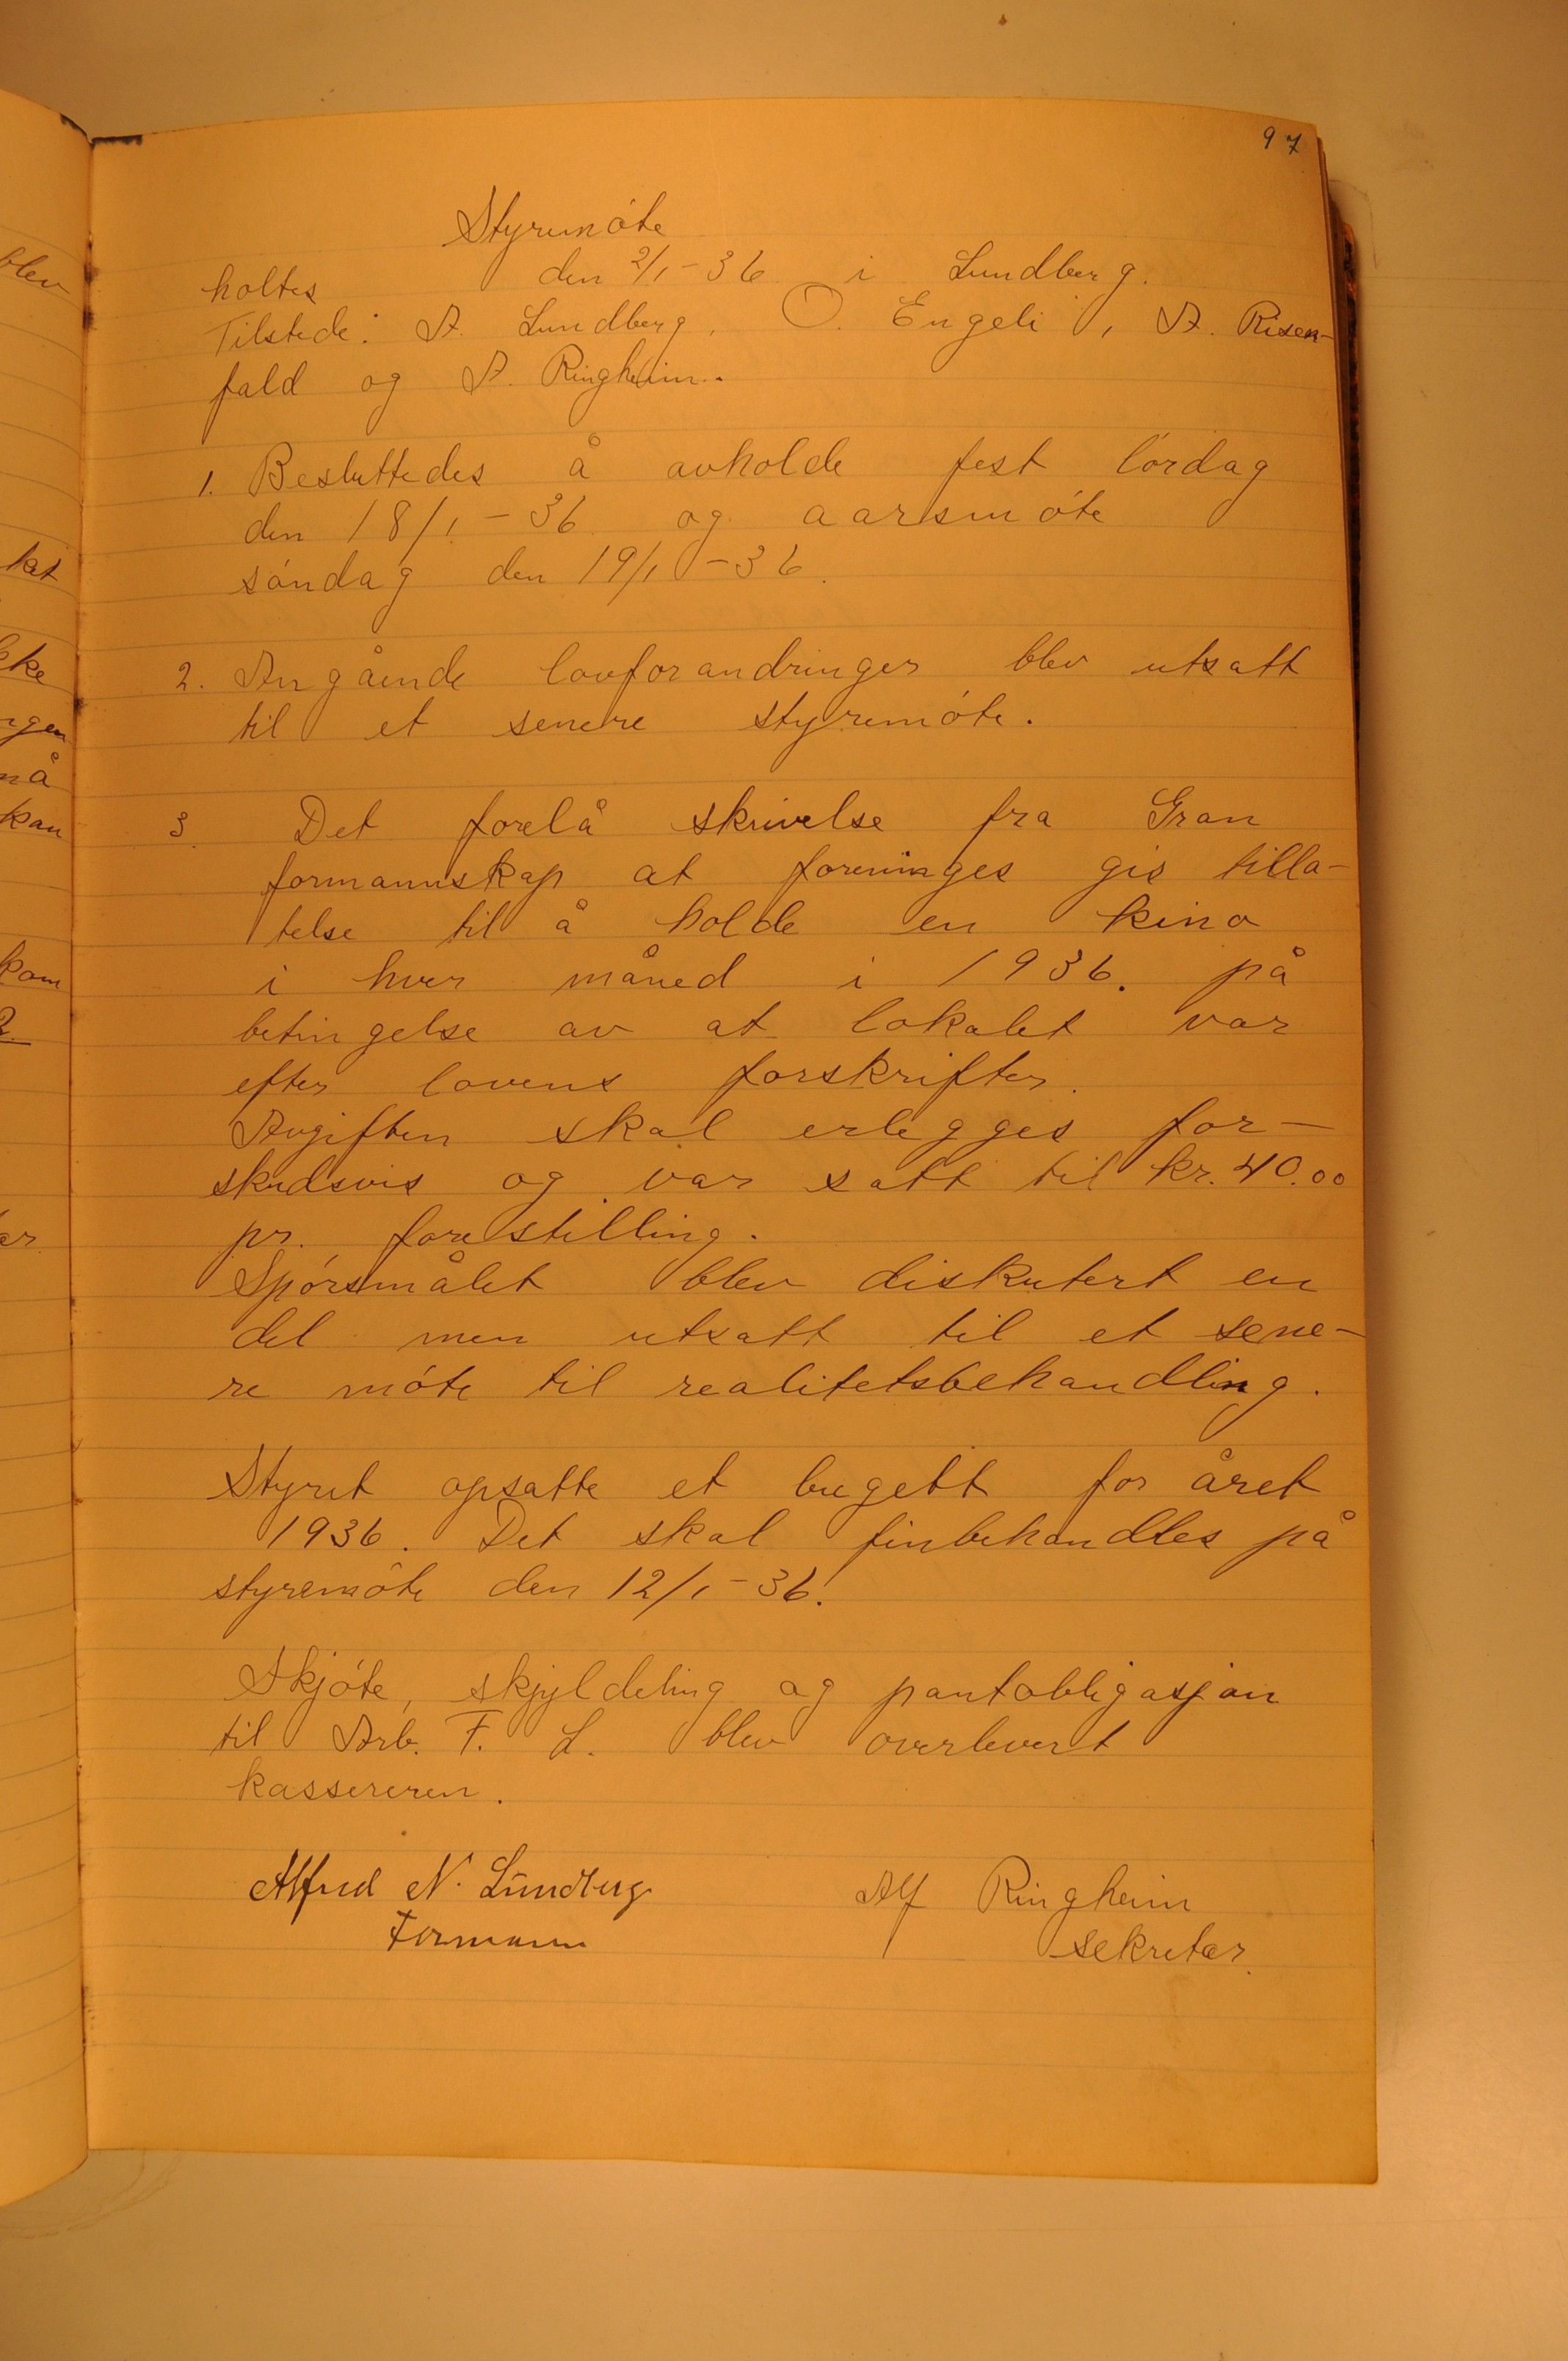 97
Styremöte
holtes den 2/1-36 i Lundberg.
Tilstede: A. Lundberg, O. Engeli, A. Risen-
fald og A. Ringheim.
1. Besluttedes å avholde fest lördag
den 18/1-36 og aarsmöte
söndag den 19/1-36.
2. Angående lovforandringer blev utsatt
til et senere styremöte.
3. Det forelå skrivelse fra Gran
formannskap at foreninges gis tilla-
telse til å holde en kino
i hver måned i 1936. på
betingelse av at lokalet var
efter lovens forskrifter.
Avgiften skal erlegges for-
skudsvis og var satt til kr. 40.00
pr. forestilling.
Spörsmålet blev diskutert en
del men utsatt til et sene-
re möte til realitetsbehandling.
Styret opsatte et bugett for året
1936. Det skal finbehandles på
styremöte den 12/1-36.
Skjöte, skjyldeling og pantobligasjon
til Arb. F. L. blev overlevert
kassereren.
Alfred N. Lundberg Alf Ringheim
Formann sekretær.
blev
ket
kke
ngen
nå
kan
kom
2.
er